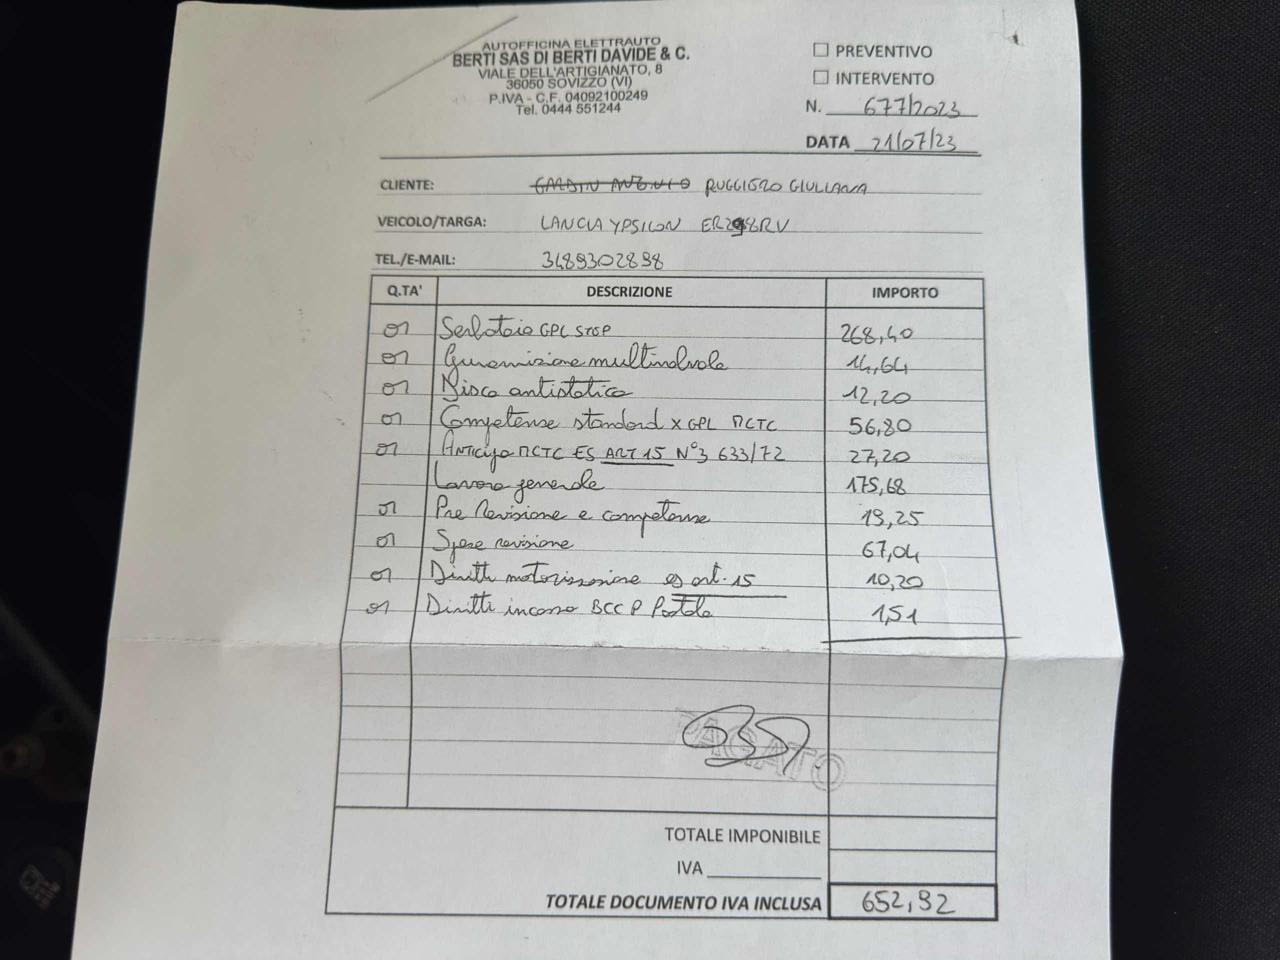 AUTOFFICINA ELETTRAUTO
BERTI SAS DI BERTI DAVIDE & C.
VIALE DELL'ARTIGIANATO, 8
36050 SOVIZZO (VI)
P.IVA - C.F. 04092100249
Tel. 0444 551244
PREVENTIVO
INTERVENTO
N. 677/2023
DATA 21/07/23
CLIENTE: RUGGIERO GIULIANA
VEICOLO/TARGA: LANCIA YPSILON ER298RV
TEL./E-MAIL: 3489302898
Q.TA' DESCRIZIONE IMPORTO
01 Serbatoio GPL STOP 268,40
01 Guarnizione multivalvola 14,64
01 Disco antistatico 12,20
01 Competenze standard x GPL MCTC 56,80
01 ANTICIPO MCTC ES ART 15 N°3 633/72 27,20
Lavoro generale 175,68
01 Pre Revisione e competenze 19,25
01 Spese revisione 67,04
01 Diritti motorizzazione es art. 15 10,20
01 Diritti incasso BCC P Postale 1,51
PAGATO
TOTALE IMPONIBILE
IVA
TOTALE DOCUMENTO IVA INCLUSA 652,92